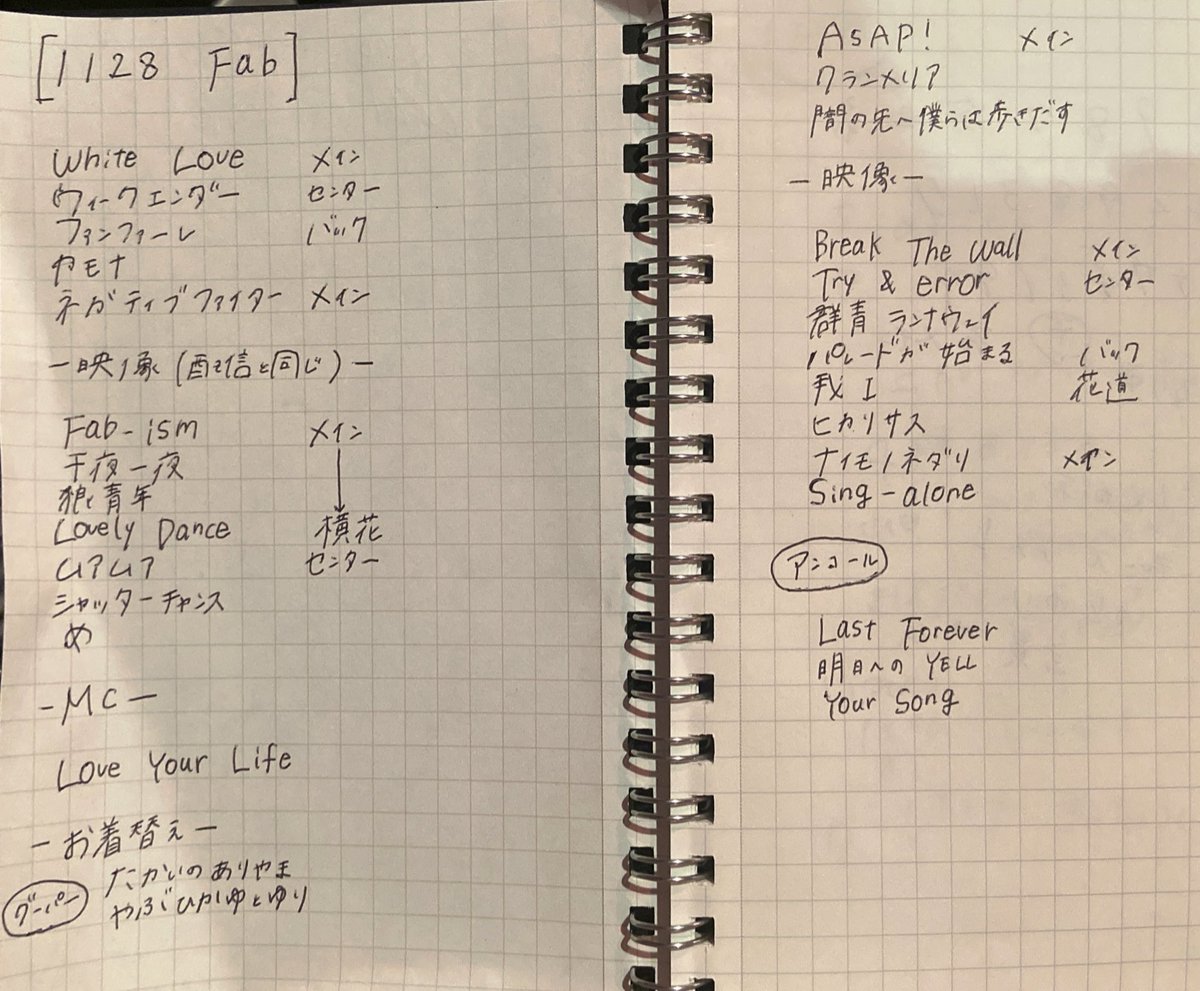 [1128 Fab]
White Love メイン
ウィークエンダー センター
ファンファーレ バック
カモナ
ネガティブファイター メイン
ー映像(配信と同じ)ー
Fab-ism メイン
千夜一夜
狼青年
Lovely Dance 横花
ムアムア センター
シャッターチャンス
め
-MCー
Love Your Life
ーお着替えー
グーパー たかいのありやま
やぶひかゆとゆり
ASAP! メイン
クランメリア
闇の先へ僕らは歩きだす
ー映像ー
Break The Wall メイン
Try & error センター
群青ランナウェイ
パレードが始まる バック
我 I 花道
ヒカリサス
ナイモノネダリ メイン
Sing-alone
アンコール
Last Forever
明日へのYELL
Your Song